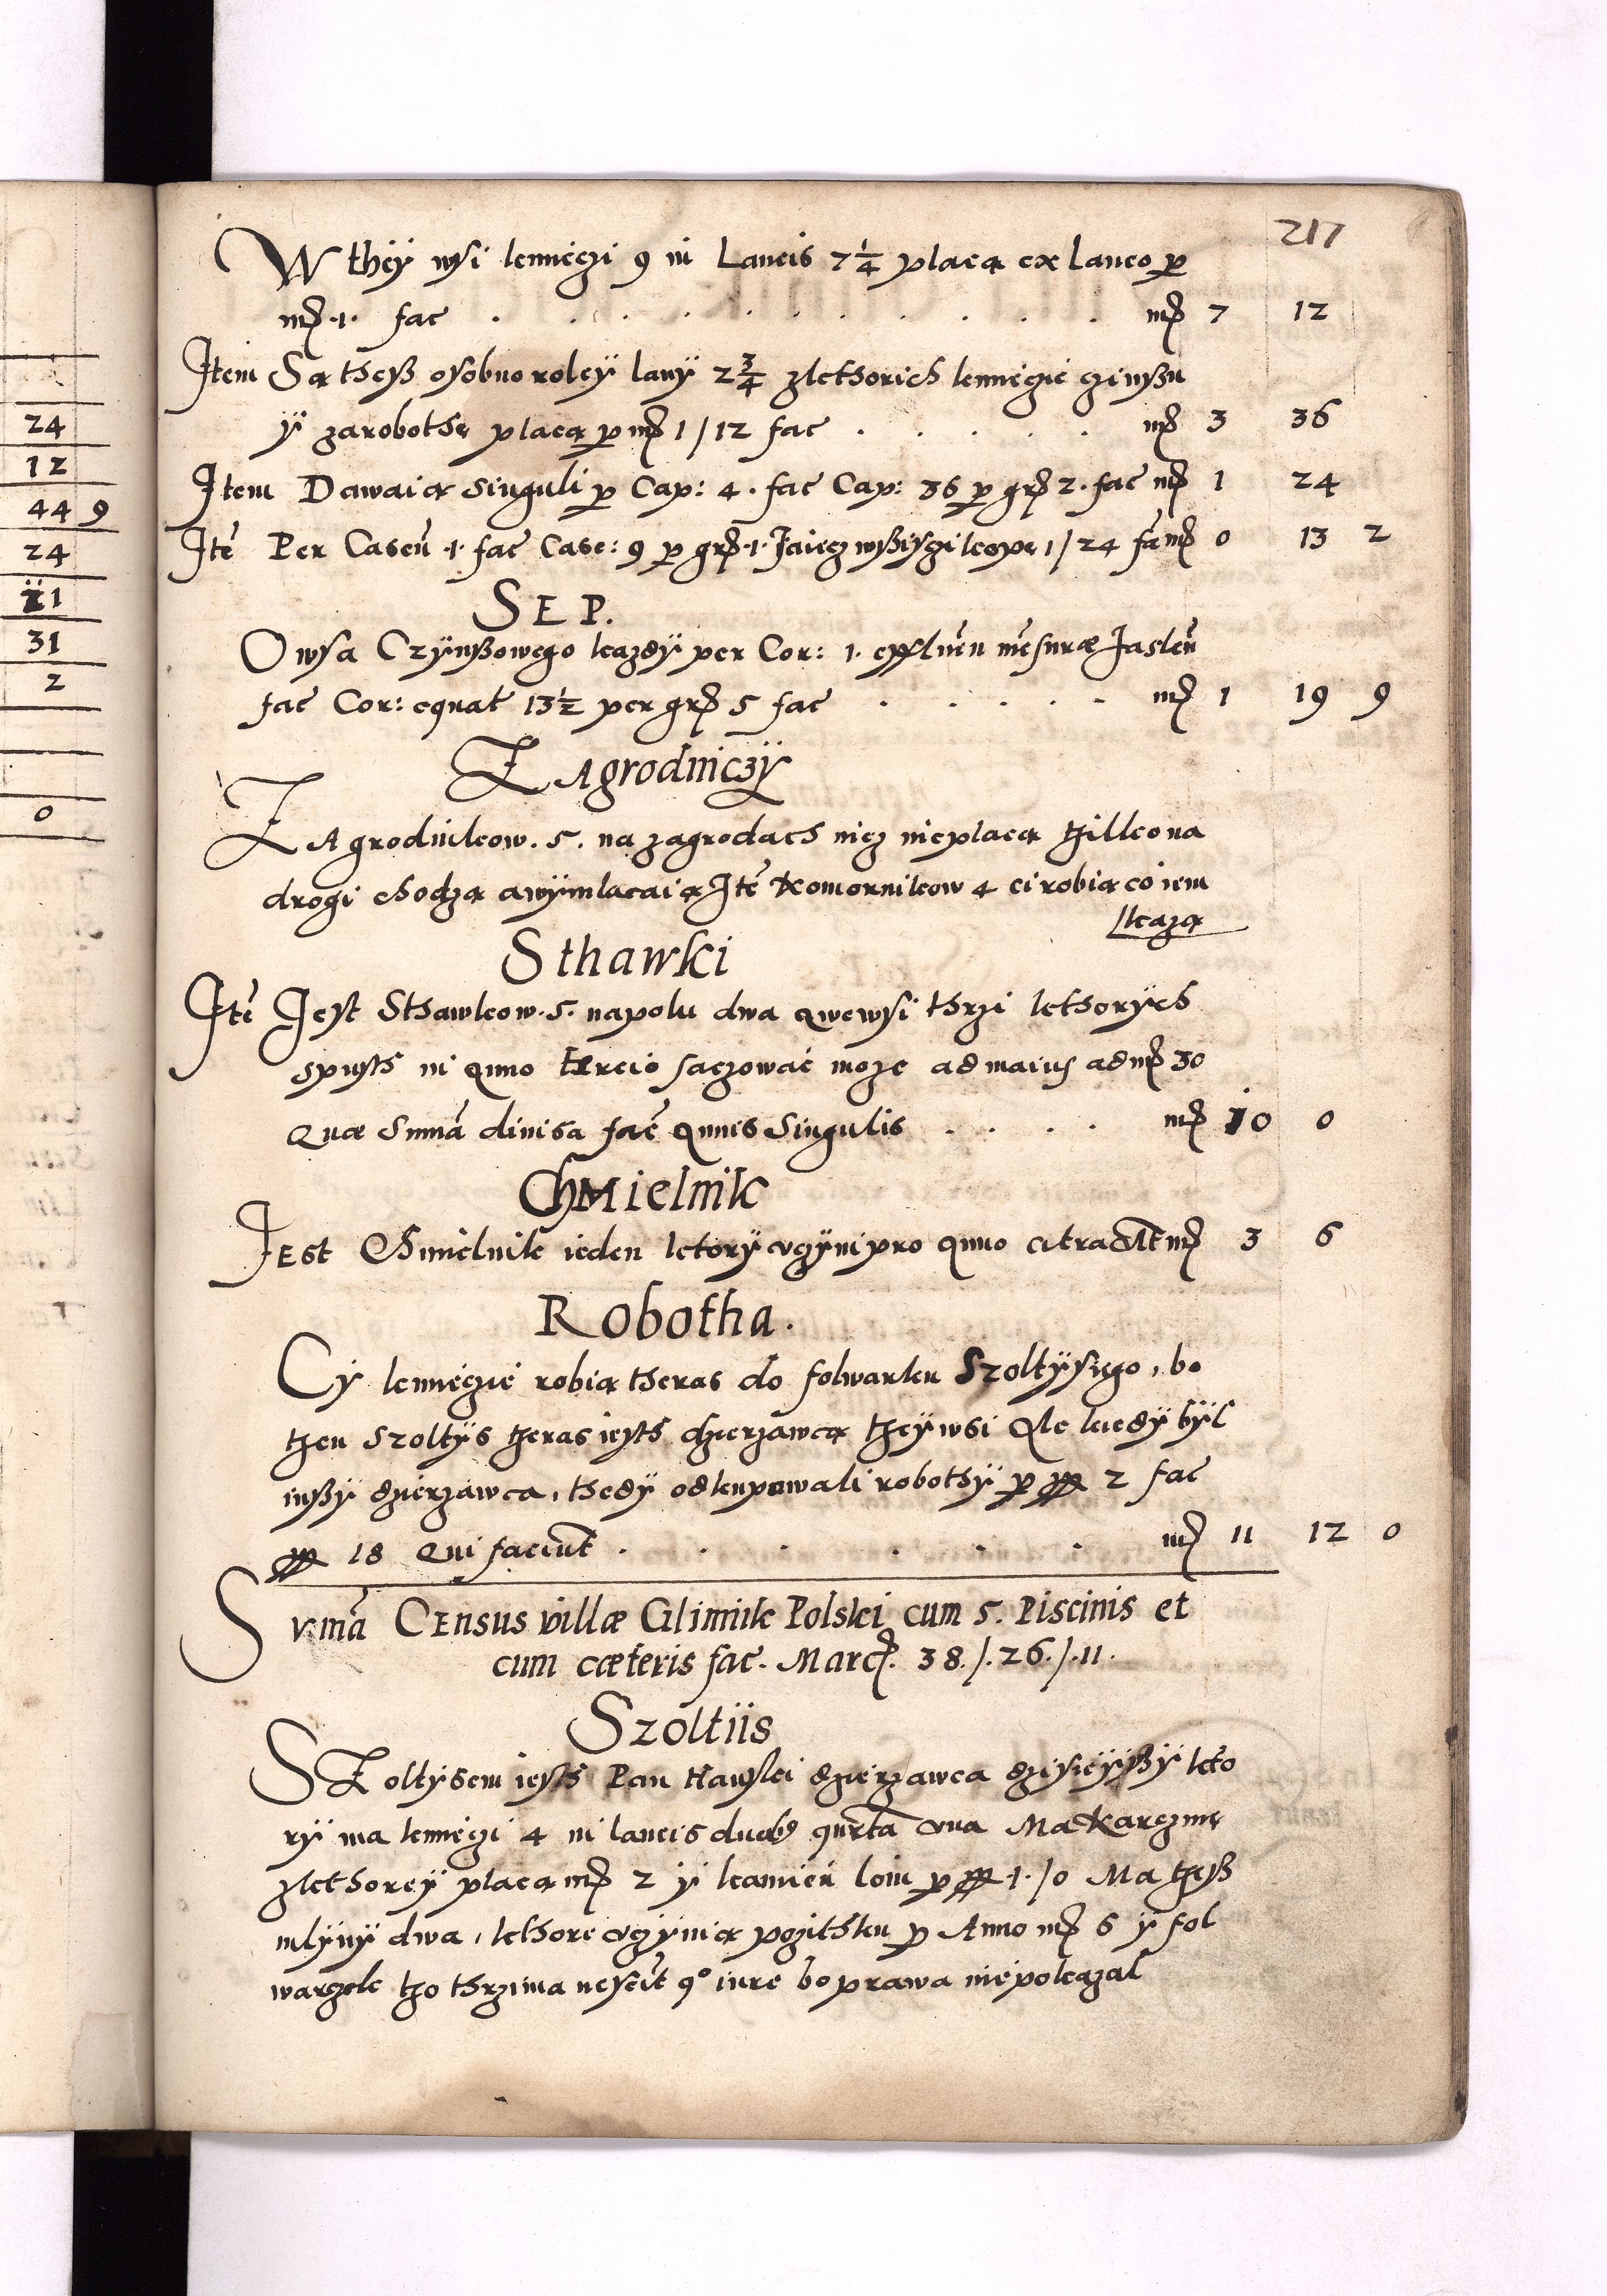 217
W they wsi kmieczi 9 in Laneis 7 1/4 placą ex laneo p
mͬ 1. fac . . . . . . . . . . mͬ 7 12
Item Są thesz osobno roley lany 2 3/4 z kthorich kmiecie czinszu
ÿ za robothę placą p mͬ 1/12 fac . . . . . mͬ 3 36
Item Dawaią singuli p Cap: 4. fac Cap: 36 p grͬ 2. fac mͬ 1 24
Itē Per Caseū 1. fac Case: 9 p grͬ 1. Jaiecz wszisczi kopę 1/24 fā mͬ 0 13 2
SEP.
Owsa Czÿnszowego kazdÿ per Cor: 1. mēsuræ Jaslēn
fac Cor: equat 13 1/2 per grͬ 5 fac . . . . . mͬ 1 19 9
ZAgrodniczÿ
ZAgrodnikow. 5. na zagrodach nicz nie placą tÿlko na
drogi chodzą a wÿmlacaią Itē Komornikow 4 ci robią co iem
każą
Sthawki
Itē Jest Sthawkow. 5. na polu dwa a we wsi thrzi kthorÿch
spusth in anno tercio saczowac moze ad maius ad mͬ 30
Quæ Sumā divisa facē annis Singulis . . . . mͬ 10 0
ChMielnik
JEst Chmielnik ieden ktorÿ vczÿni pro anno citra mͬ 3 6
Robotha.
Cy kmiecie robią theras do folwarku Szoltÿsiego, bo
then Szoltÿs theras iesth dzierzawcą theÿ wsi Ale kiedÿ bÿl
inszÿ dzierzawca, thedÿ odkupowali robothÿ p 2 fac
18 Qui faciūt . . . . . . mͬ 11 12 0
Sumā CEnsus villæ Glinnik Polski cum 5. Piscinis et
cum cæteris fac. Marc. 38./.26./.11.
Szoltiis
SZoltysem iesth Pan dzierzawca dzisieÿszÿ kto
rÿ ma kmieczi 4 in laneis duobꝫ qurta vna Ma Karczmę
z kthoreÿ placą mͬ 2 ÿ kamień loiu p 1./0 Ma thesz
mlÿnÿ dwa, kthore vczÿnią pozithku p Anno mͬ 6 ÿ fol
warzek tho thrzima nescit qo iure bo prawa nie pokazal
24
12
44 9
24
21
31
2
0